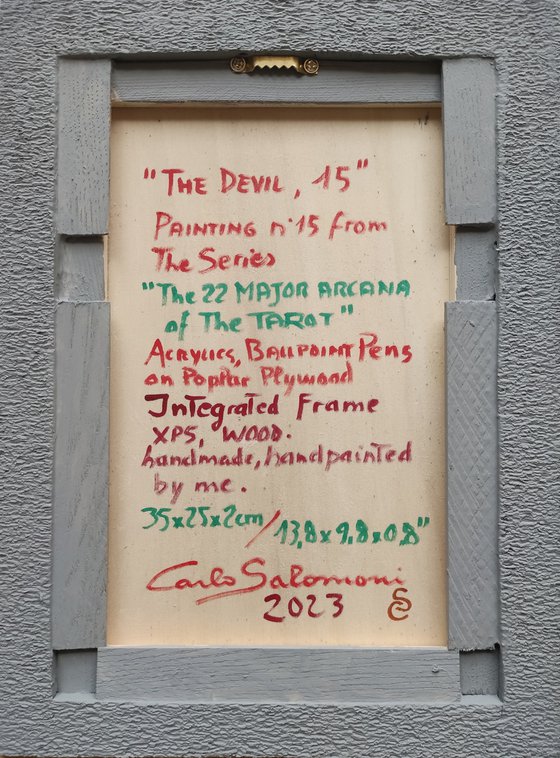 "THE DEVIL, 15"
PAINTING n°15 from
The Series
"The 22 MAJOR ARCANA
of The TAROT"
ACRYLICS, BALLPOINT Pens
on Poplar Plywood
Integrated Frame
XPS, WOOD.
handmade, handpainted
by me.
35x25x2cm/13,8x9,8x0,8"
Carlo Salomoni
2023